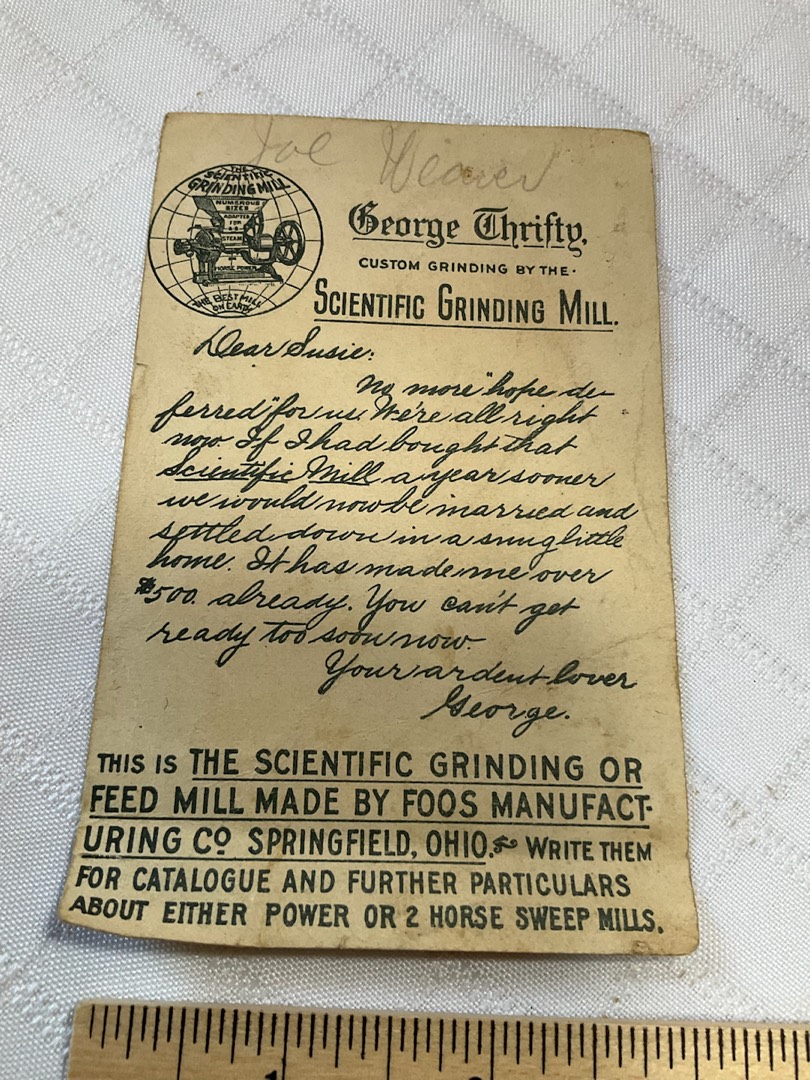 Joe Weaver
THE
SCIENTIFIC
GRINDING MILL
NUMEROUS
SIZES
ADAPTED
FOR
STEAM
HORSE POWER
THE BEST MILL
ON EARTH
George Thrifty,
CUSTOM GRINDING BY THE.
SCIENTIFIC GRINDING MILL.
Dear Susie:
No more "hope de-
ferred" for us. We're all right
now If I had bought that
Scientific Mill a year sooner
we would now be married and
settled down in a snug little
home. It has made me over
$500. already. You can't get
ready too soon now.
Your ardent lover
George.
THIS IS THE SCIENTIFIC GRINDING OR
FEED MILL MADE BY FOOS MANUFACT-
URING CO SPRINGFIELD, OHIO. WRITE THEM
FOR CATALOGUE AND FURTHER PARTICULARS
ABOUT EITHER POWER OR 2 HORSE SWEEP MILLS.